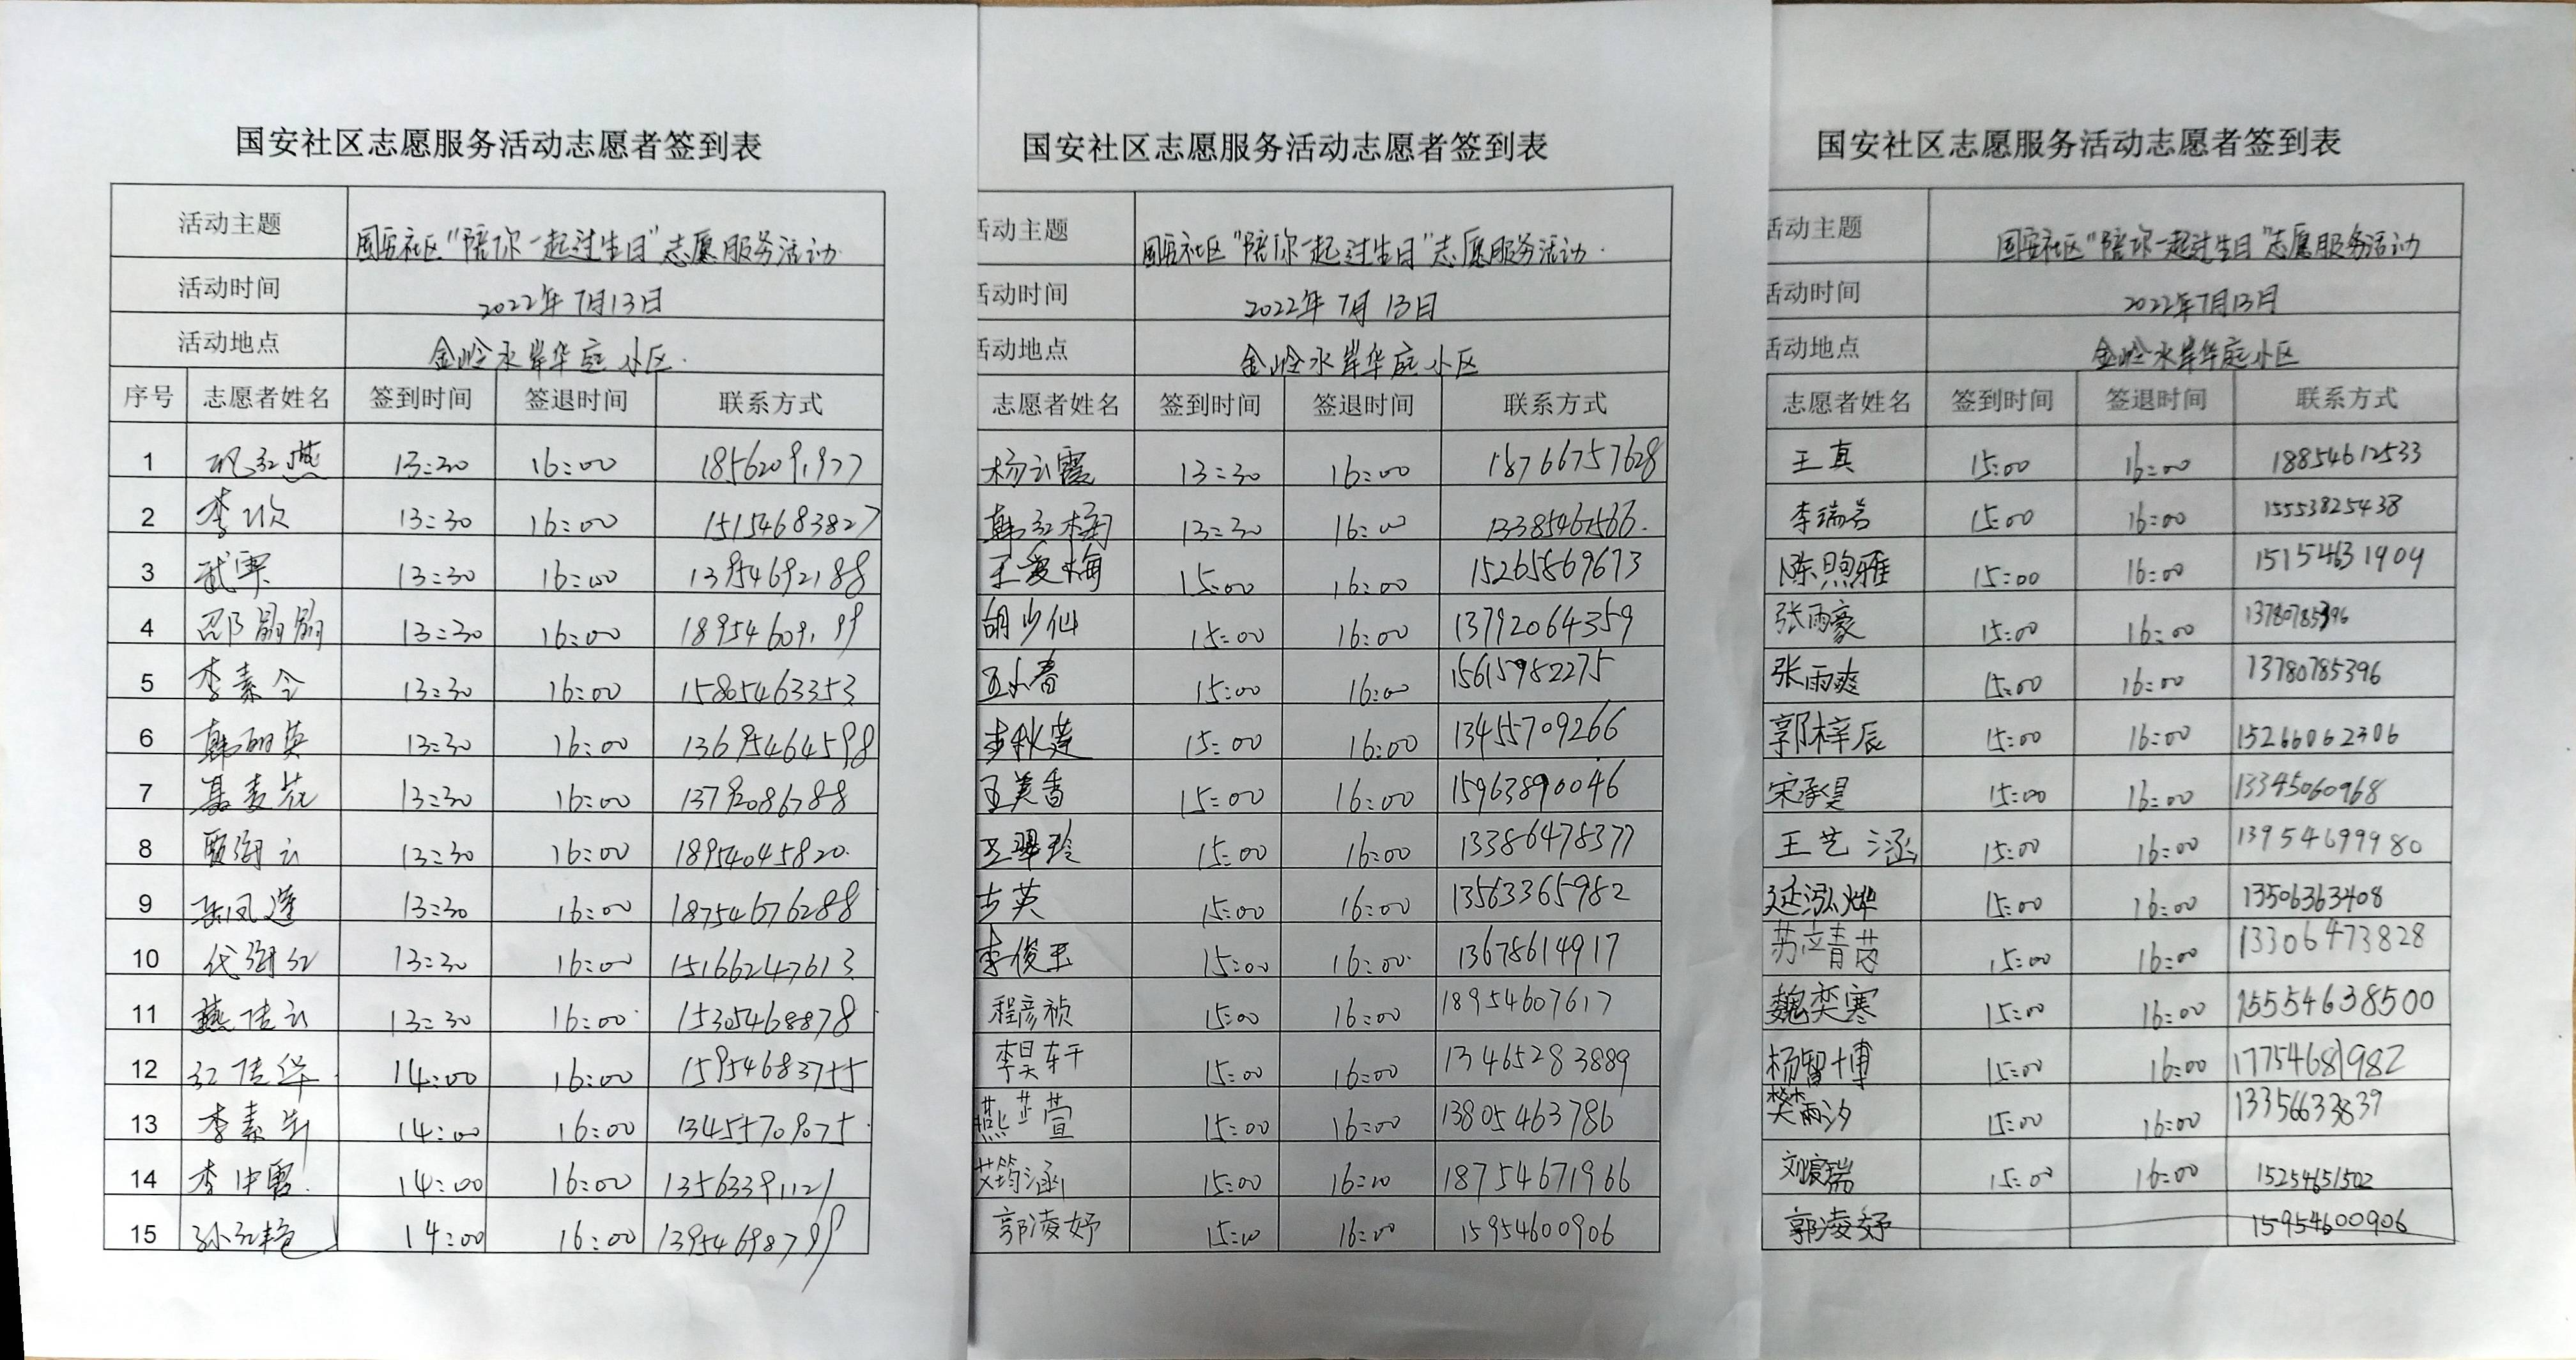 国安社区志愿服务活动志愿者签到表
活动主题 国安社区“陪你一起过生日”志愿服务活动
活动时间 2022年7月13日
活动地点 金岭水岸华庭小区
序号 志愿者姓名 签到时间 签退时间 联系方式
1 13:30 16:00
2 李欣 13:30 16:00 15154683827
3 武霞 13:30 16:00 13954692188
4 邵朋朋 13:30 16:00
5 李素令 13:30 16:00 15805463353
6 韩丽英 13:30 16:00 13695464598
7 聂麦花 13:30 16:00 13792086788
8 贾海云 13:30 16:00 18954045820
9 岳凤莲 13:30 16:00 18754676288
10 代海红 13:30 16:00 15166247613
11 燕传云 13:30 16:00 15305468878
12 红传华 14:00 16:00 15954683755
13 李素 14:00 16:00 13455709075
14 李中 14:00 16:00 13563391121
15 孙红艳 14:00 16:00 13954698799
国安社区志愿服务活动志愿者签到表
活动主题 国安社区“陪你一起过生日”志愿服务活动
活动时间 2022年7月13日
活动地点 金岭水岸华庭小区
志愿者姓名 签到时间 签退时间 联系方式
杨云霞 13:30 16:00 18766757628
韩红梅 13:30 16:00
王爱梅 15:00 16:00 15265869673
胡少仙 15:00 16:00 13792064359
王小春 15:00 16:00 15615982275
步秋莲 15:00 16:00 13455709266
王美香 15:00 16:00 15963890046
王翠玲 15:00 16:00 13386478377
步英 15:00 16:00 13563365982
李俊玉 15:00 16:00 13678614917
程彦祯 15:00 16:00 18954607617
李昊轩 15:00 16:00 13465283889
燕芷萱 15:00 16:00 13805463786
艾筠涵 15:00 16:00 18754671966
郭凌妤 15:00 16:00 15954600906
国安社区志愿服务活动志愿者签到表
活动主题 国安社区“陪你一起过生日”志愿服务活动
活动时间 2022年7月13日
活动地点 金岭水岸华庭小区
志愿者姓名 签到时间 签退时间 联系方式
王真 15:00 16:00 18854612533
李瑞 15:00 16:00 15553825438
陈煦雅 15:00 16:00 15154631904
张雨豪 15:00 16:00 13780785396
张雨爽 15:00 16:00 13780785396
郭梓辰 15:00 16:00 15266062306
宋承昊 15:00 16:00 13345060968
王艺涵 15:00 16:00 13954699980
延泓烨 15:00 16:00 13506363408
15:00 16:00 13306473828
魏奕寒 15:00 16:00 15554638500
杨智博 15:00 16:00 17754681982
樊雨汐 15:00 16:00 13356633839
刘宸瑞 15:00 16:00 15254651502
郭凌妤 15954600906